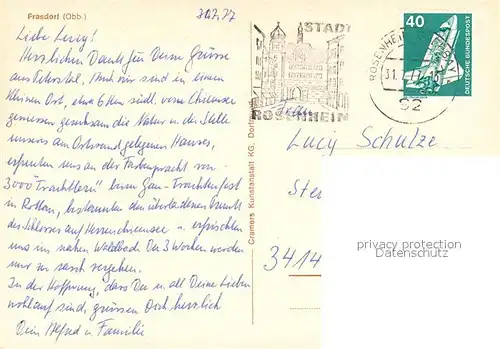 Frasdorf (Obb.)
30.7.77
Liebe Lucy!
Herzlichen Dank für Deine Grüsse
aus Auch wir sind in einem
kleinen Ort, etwa 6 km südl. vom Chiemsee
geniessen gemeinsam die Natur u. die Stille
unseres am Ortsrand gelegenen Hauses,
erfreuten uns an der Farbenpracht von
3000 "Trachtlern" beim Gau-Trachtenfest
in Rottau, bestaunten den überladenen Prunk
des Schlosses auf Herrenchiemsee u. erfrischten
uns im nahen Waldbad. Die 3 Wochen werden
nur zu rasch vergehen.
In der Hoffnung, dass Du u. all Deine Lieben
wohlauf sind, grüssen Dich herzlich
Dein Alfred u. Familie
Cramers Kunstanstalt KG, Dortmund
STADT
ROSENHEIM
ROSENHEIM
31.
82
40
DEUTSCHE BUNDESPOST
Frau
Lucy Schulze
Ste
3414
privacy protection
Datenschutz